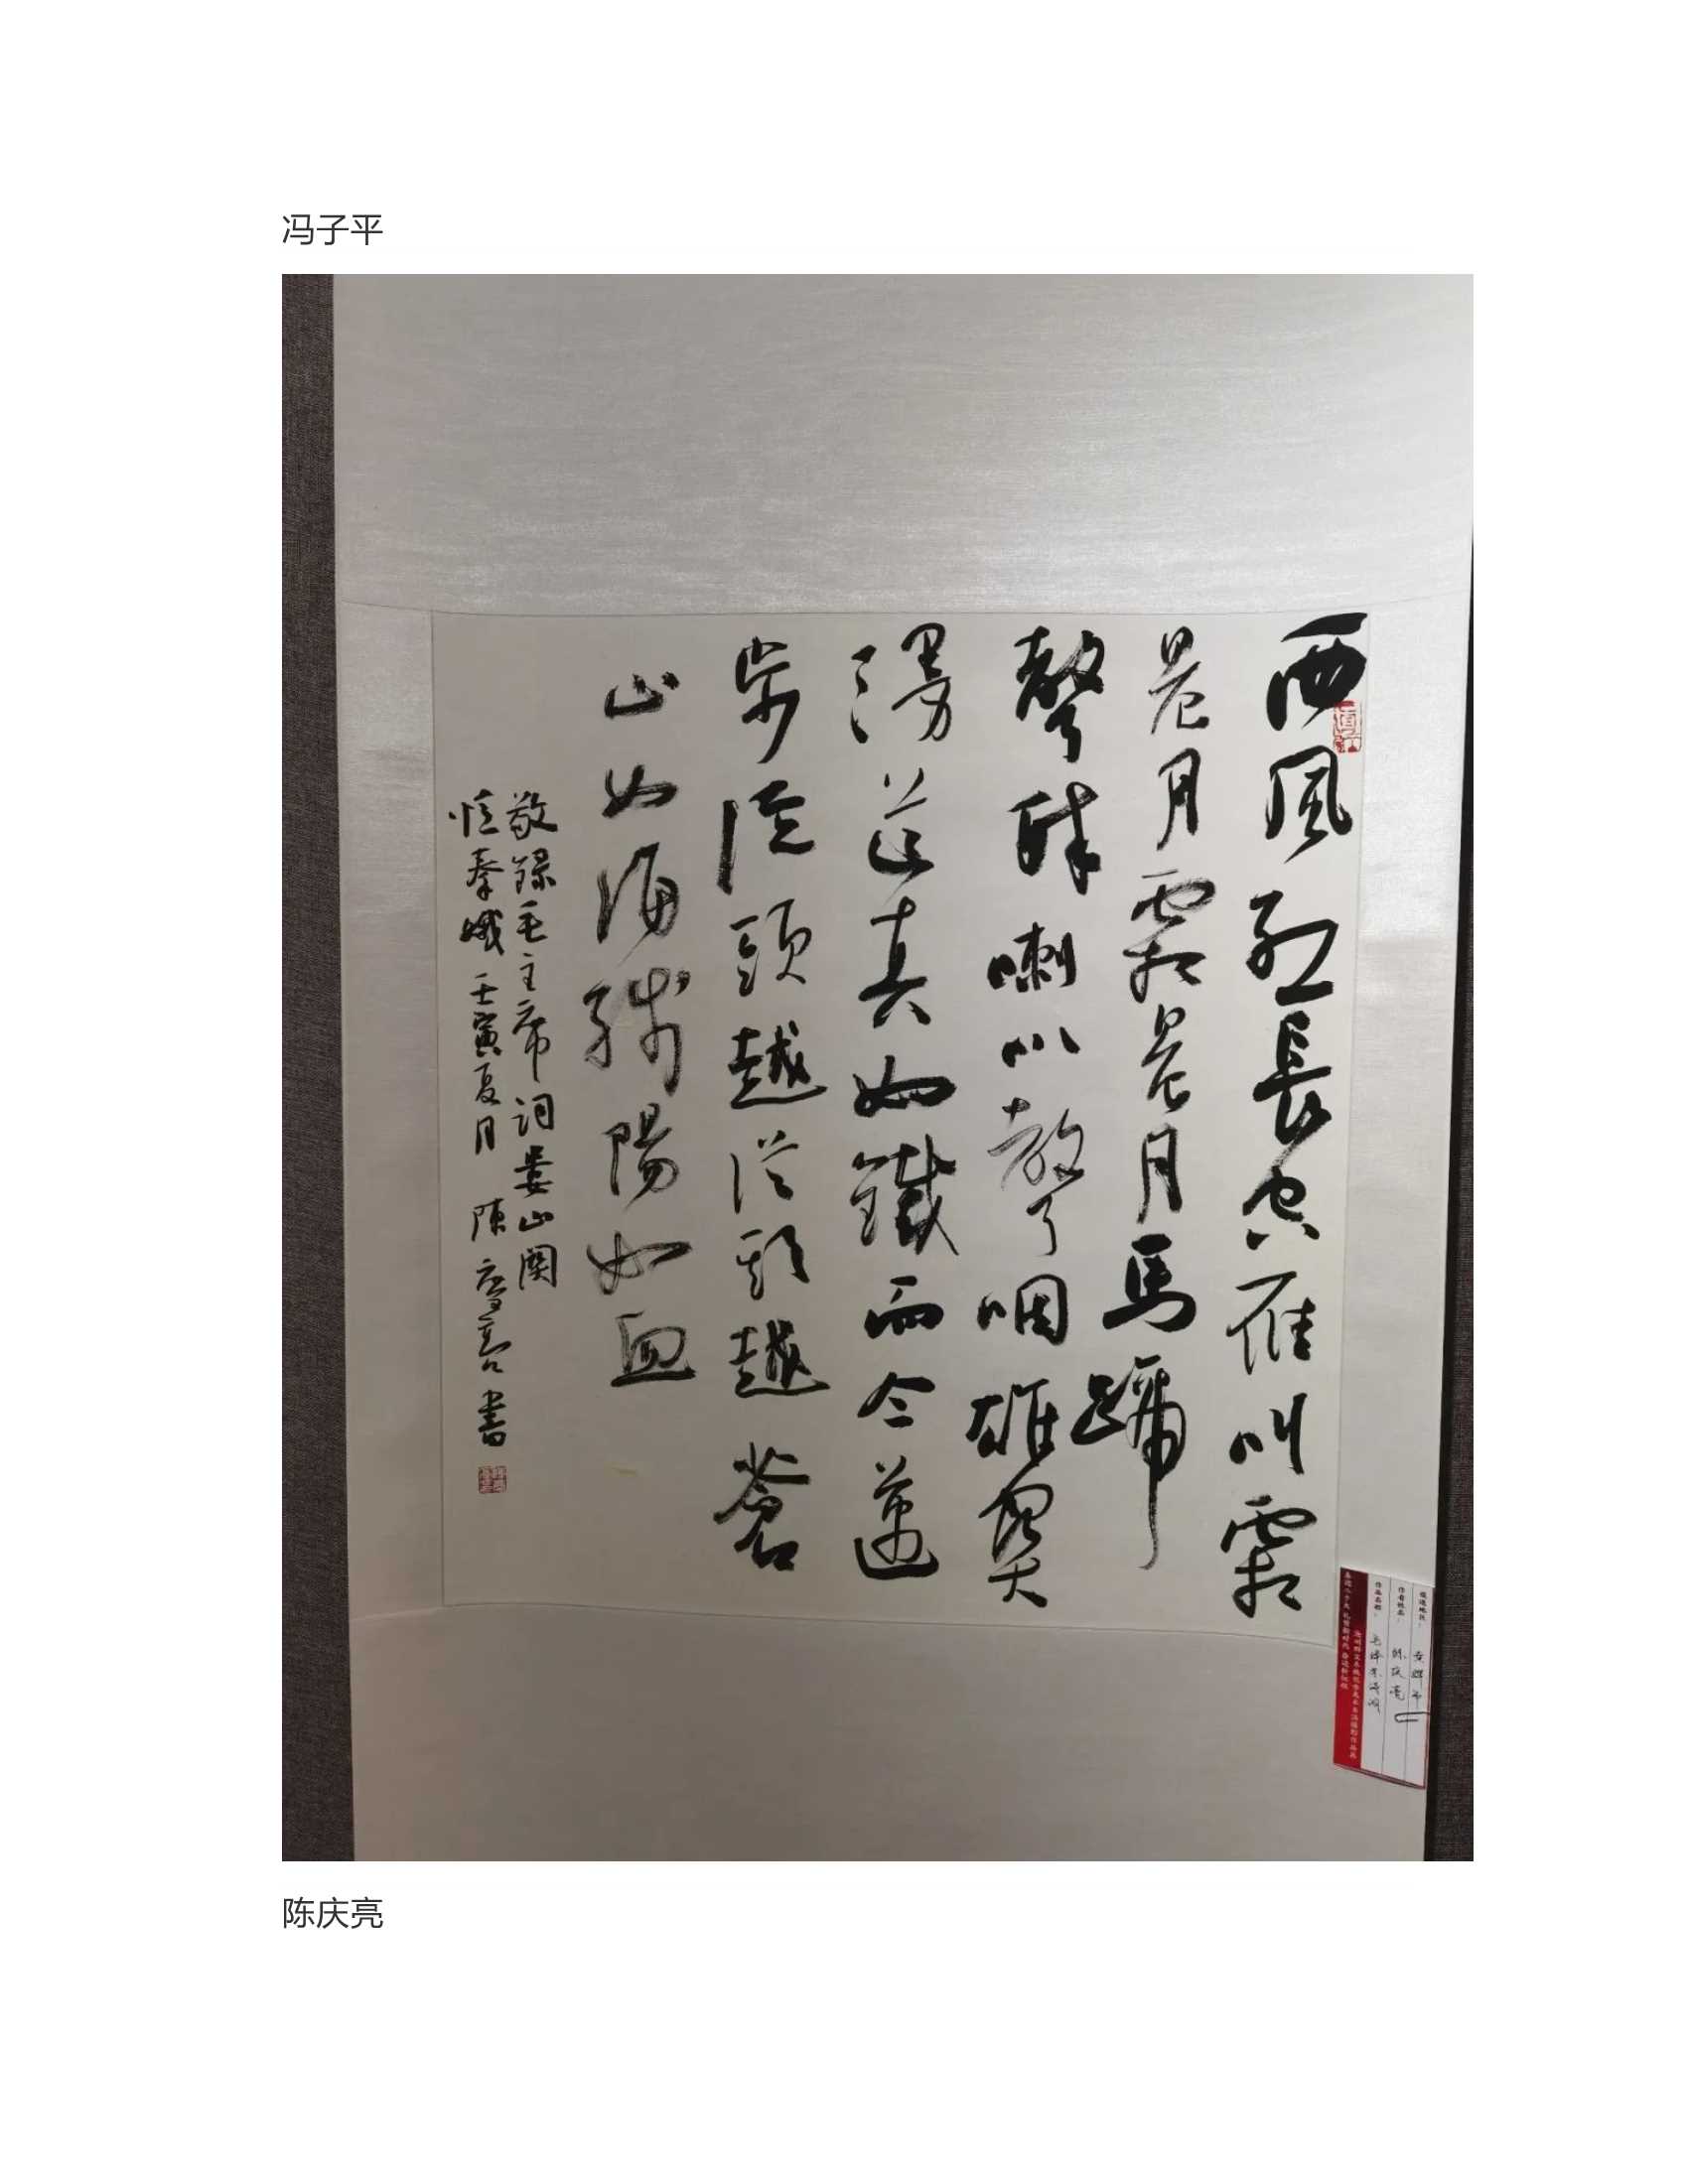 冯子平
西風烈長空雁叫霜
晨月霜晨月馬蹄
聲碎喇叭聲了咽雄關
漫道真如鐵而今邁
步從頭越從頭越蒼
山如海殘陽如血
敬錄毛主席詞婁山關
憶秦娥 壬寅夏月 陳慶亮書
作者姓名: 陈庆亮
作品名称:
陈庆亮